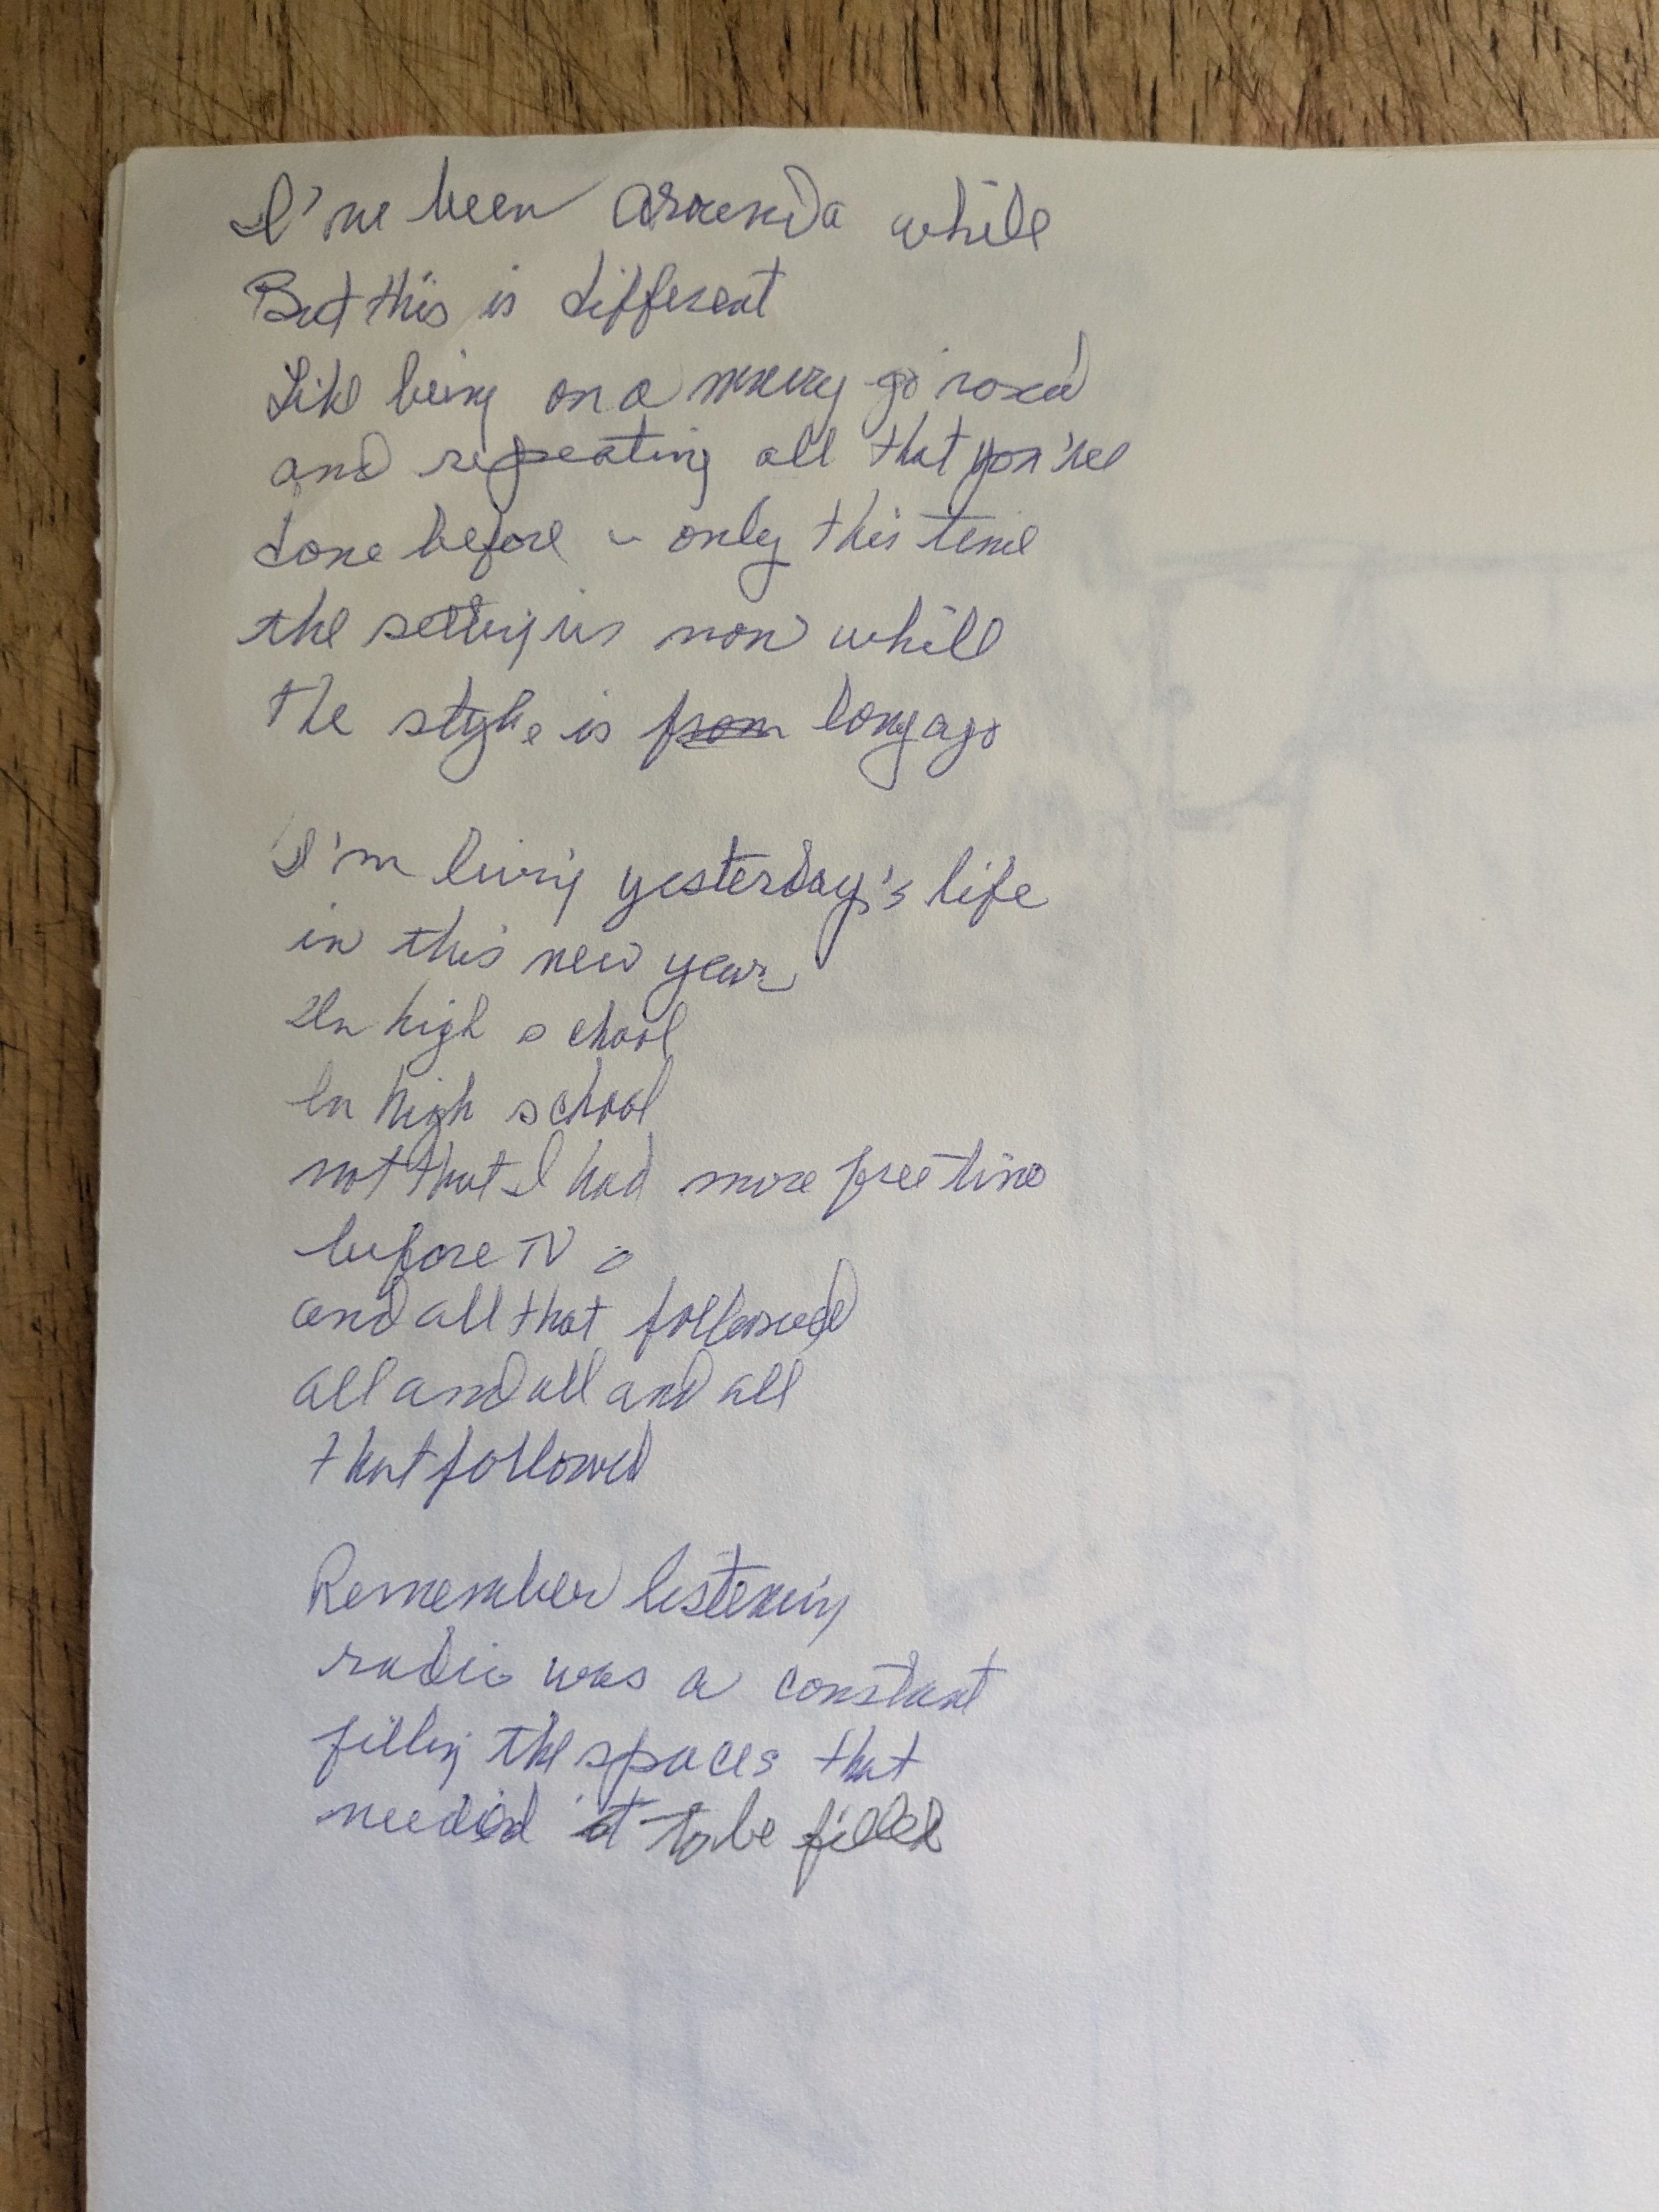 I've been around a while
But this is different
Like being on a merry go round
and repeating all that you've
done before - only this time
the setting is now while
the style is from long ago
I'm living yesterday's life
in this new year
In high school
In high school
not that I had more free time
before TV
and all that followed
all and all and all
that followed
Remember listening
radio was a constant
filling the spaces that
needed to be filled